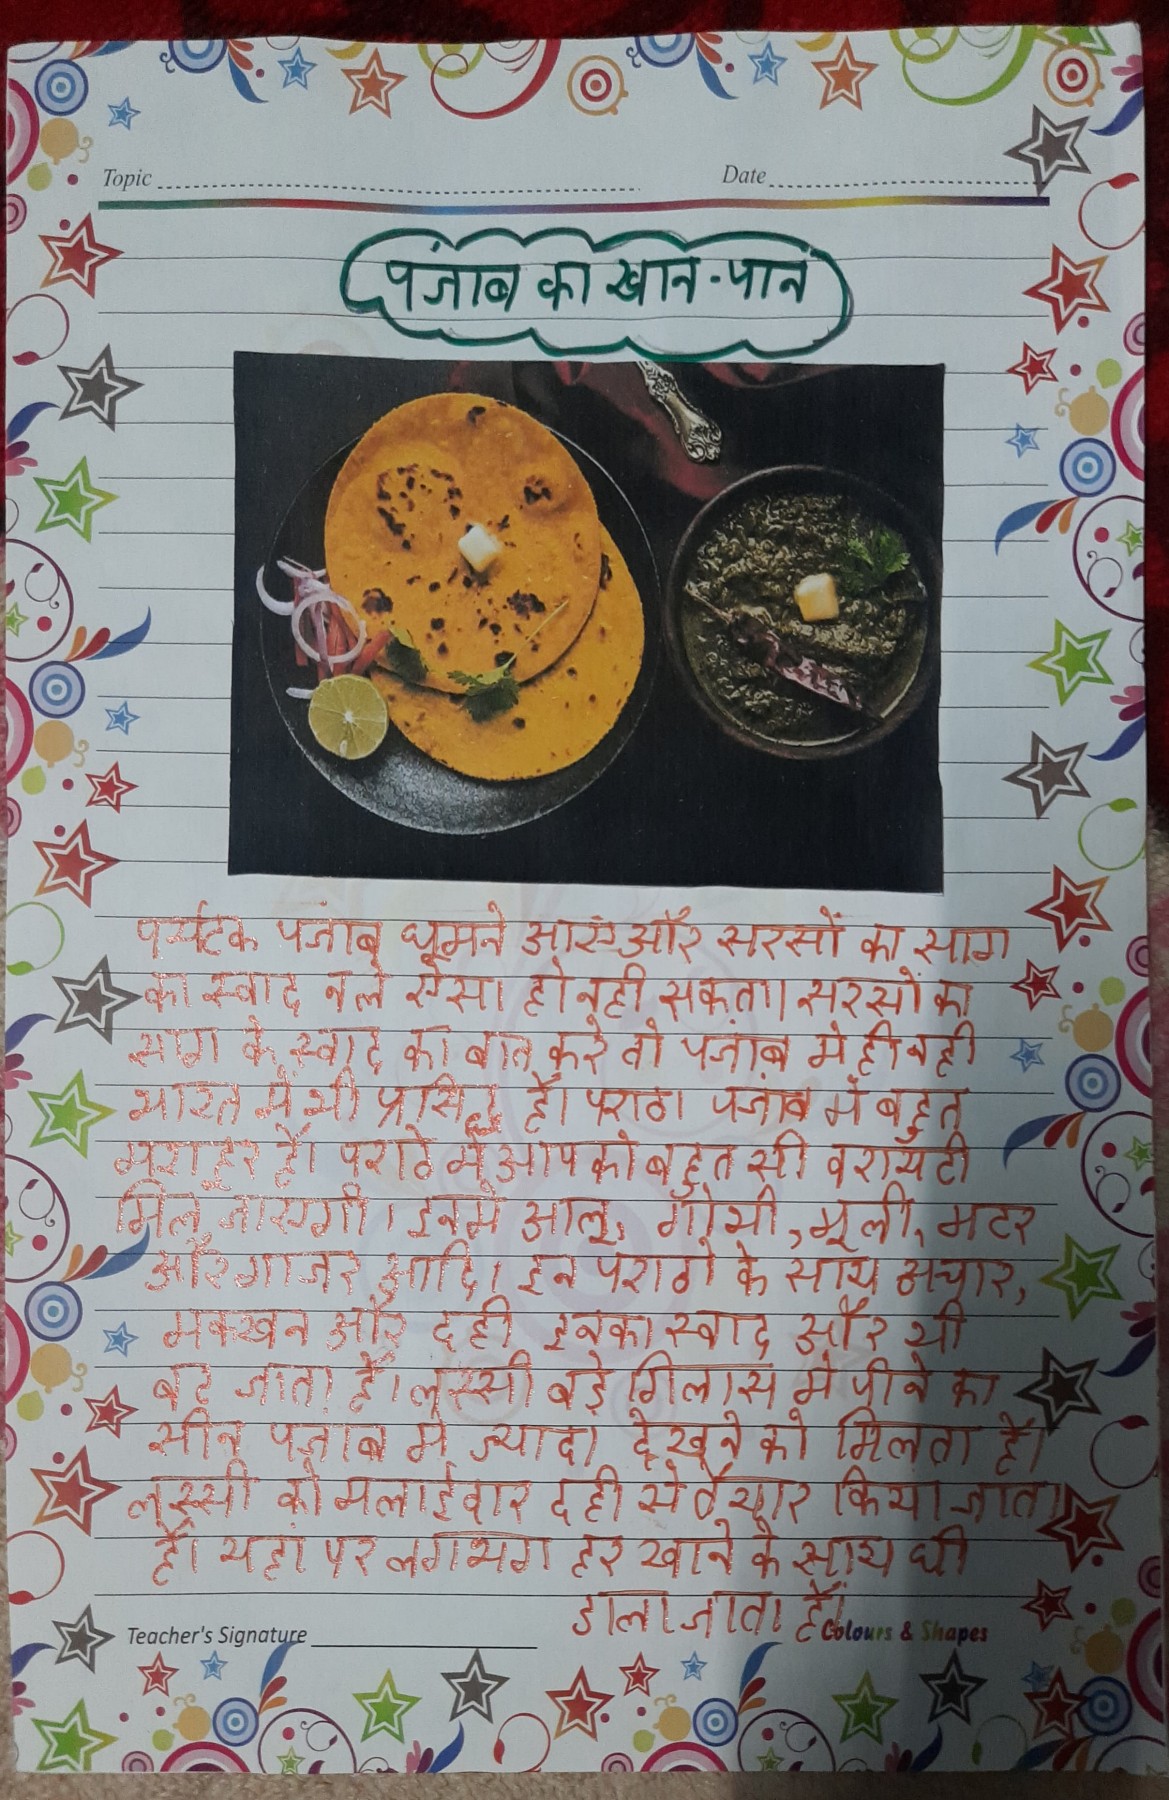 Topic
Date
पंजाब का खान-पान
पर्यटक पंजाब घूमने आएं और सरसों का साग
का स्वाद न ले ऐसा हो नही सकता। सरसों का
साग के स्वाद की बात करे तो पंजाब मे ही नही
भारत में भी प्रसिद्ध है। पराठा पंजाब में बहुत
मशहूर है। पराठे में आपको बहुत सी वरायटी
मिल जाएगी। इनमें आलू, गोभी, मूली, मटर
और गाजर आदि। इन पराठो के साथ अचार,
मक्खन और दही इनका स्वाद और भी
बढ जाता है। लस्सी बड़े गिलास मे पीने का
सीन पंजाब मे ज्यादा देखने को मिलता है।
लस्सी को मलाईदार दही से तैयार किया जाता
है। यहां पर लगभग हर खाने के साथ घी
डाला जाता है।
Teacher's Signature
Colours & Shapes